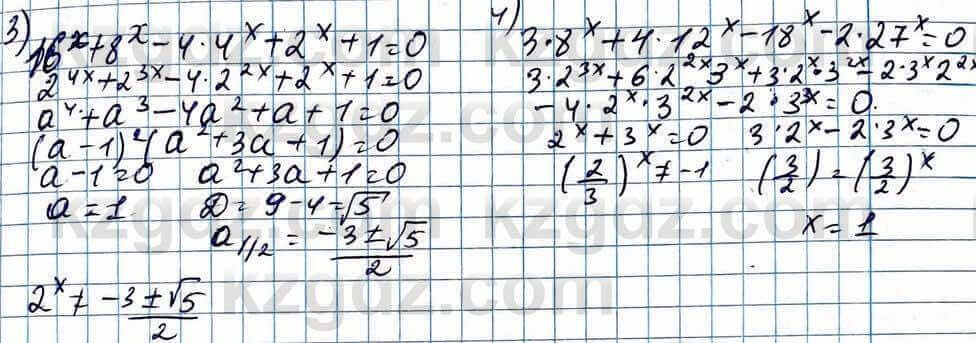 3)
16^x + 8^x - 4·4^x + 2^x + 1 = 0
2^{4x} + 2^{3x} - 4·2^{2x} + 2^x + 1 = 0
a^4 + a^3 - 4a^2 + a + 1 = 0
(a - 1)^2 (a^2 + 3a + 1) = 0
a - 1 = 0 a^2 + 3a + 1 = 0
a = 1. D = 9 - 4 = √5
a_{1/2} = \frac{-3 ± √5}{2}
2^x ≠ \frac{-3 ± √5}{2}
4)
3·8^x + 4·12^x - 18^x - 2·27^x = 0
3·2^{3x} + 6·2^{2x} 3^x + 3·2^x·3^{2x} - 2·3^x 2^{2x}
- 4·2^x·3^{2x} - 2·3^{3x} = 0.
2^x + 3^x = 0 3·2^x - 2·3^x = 0
(\frac{2}{3})^x ≠ -1 (\frac{3}{2}) = (\frac{3}{2})^x
x = 1
kzgdz.com
kzgdz.com
kzgdz.com